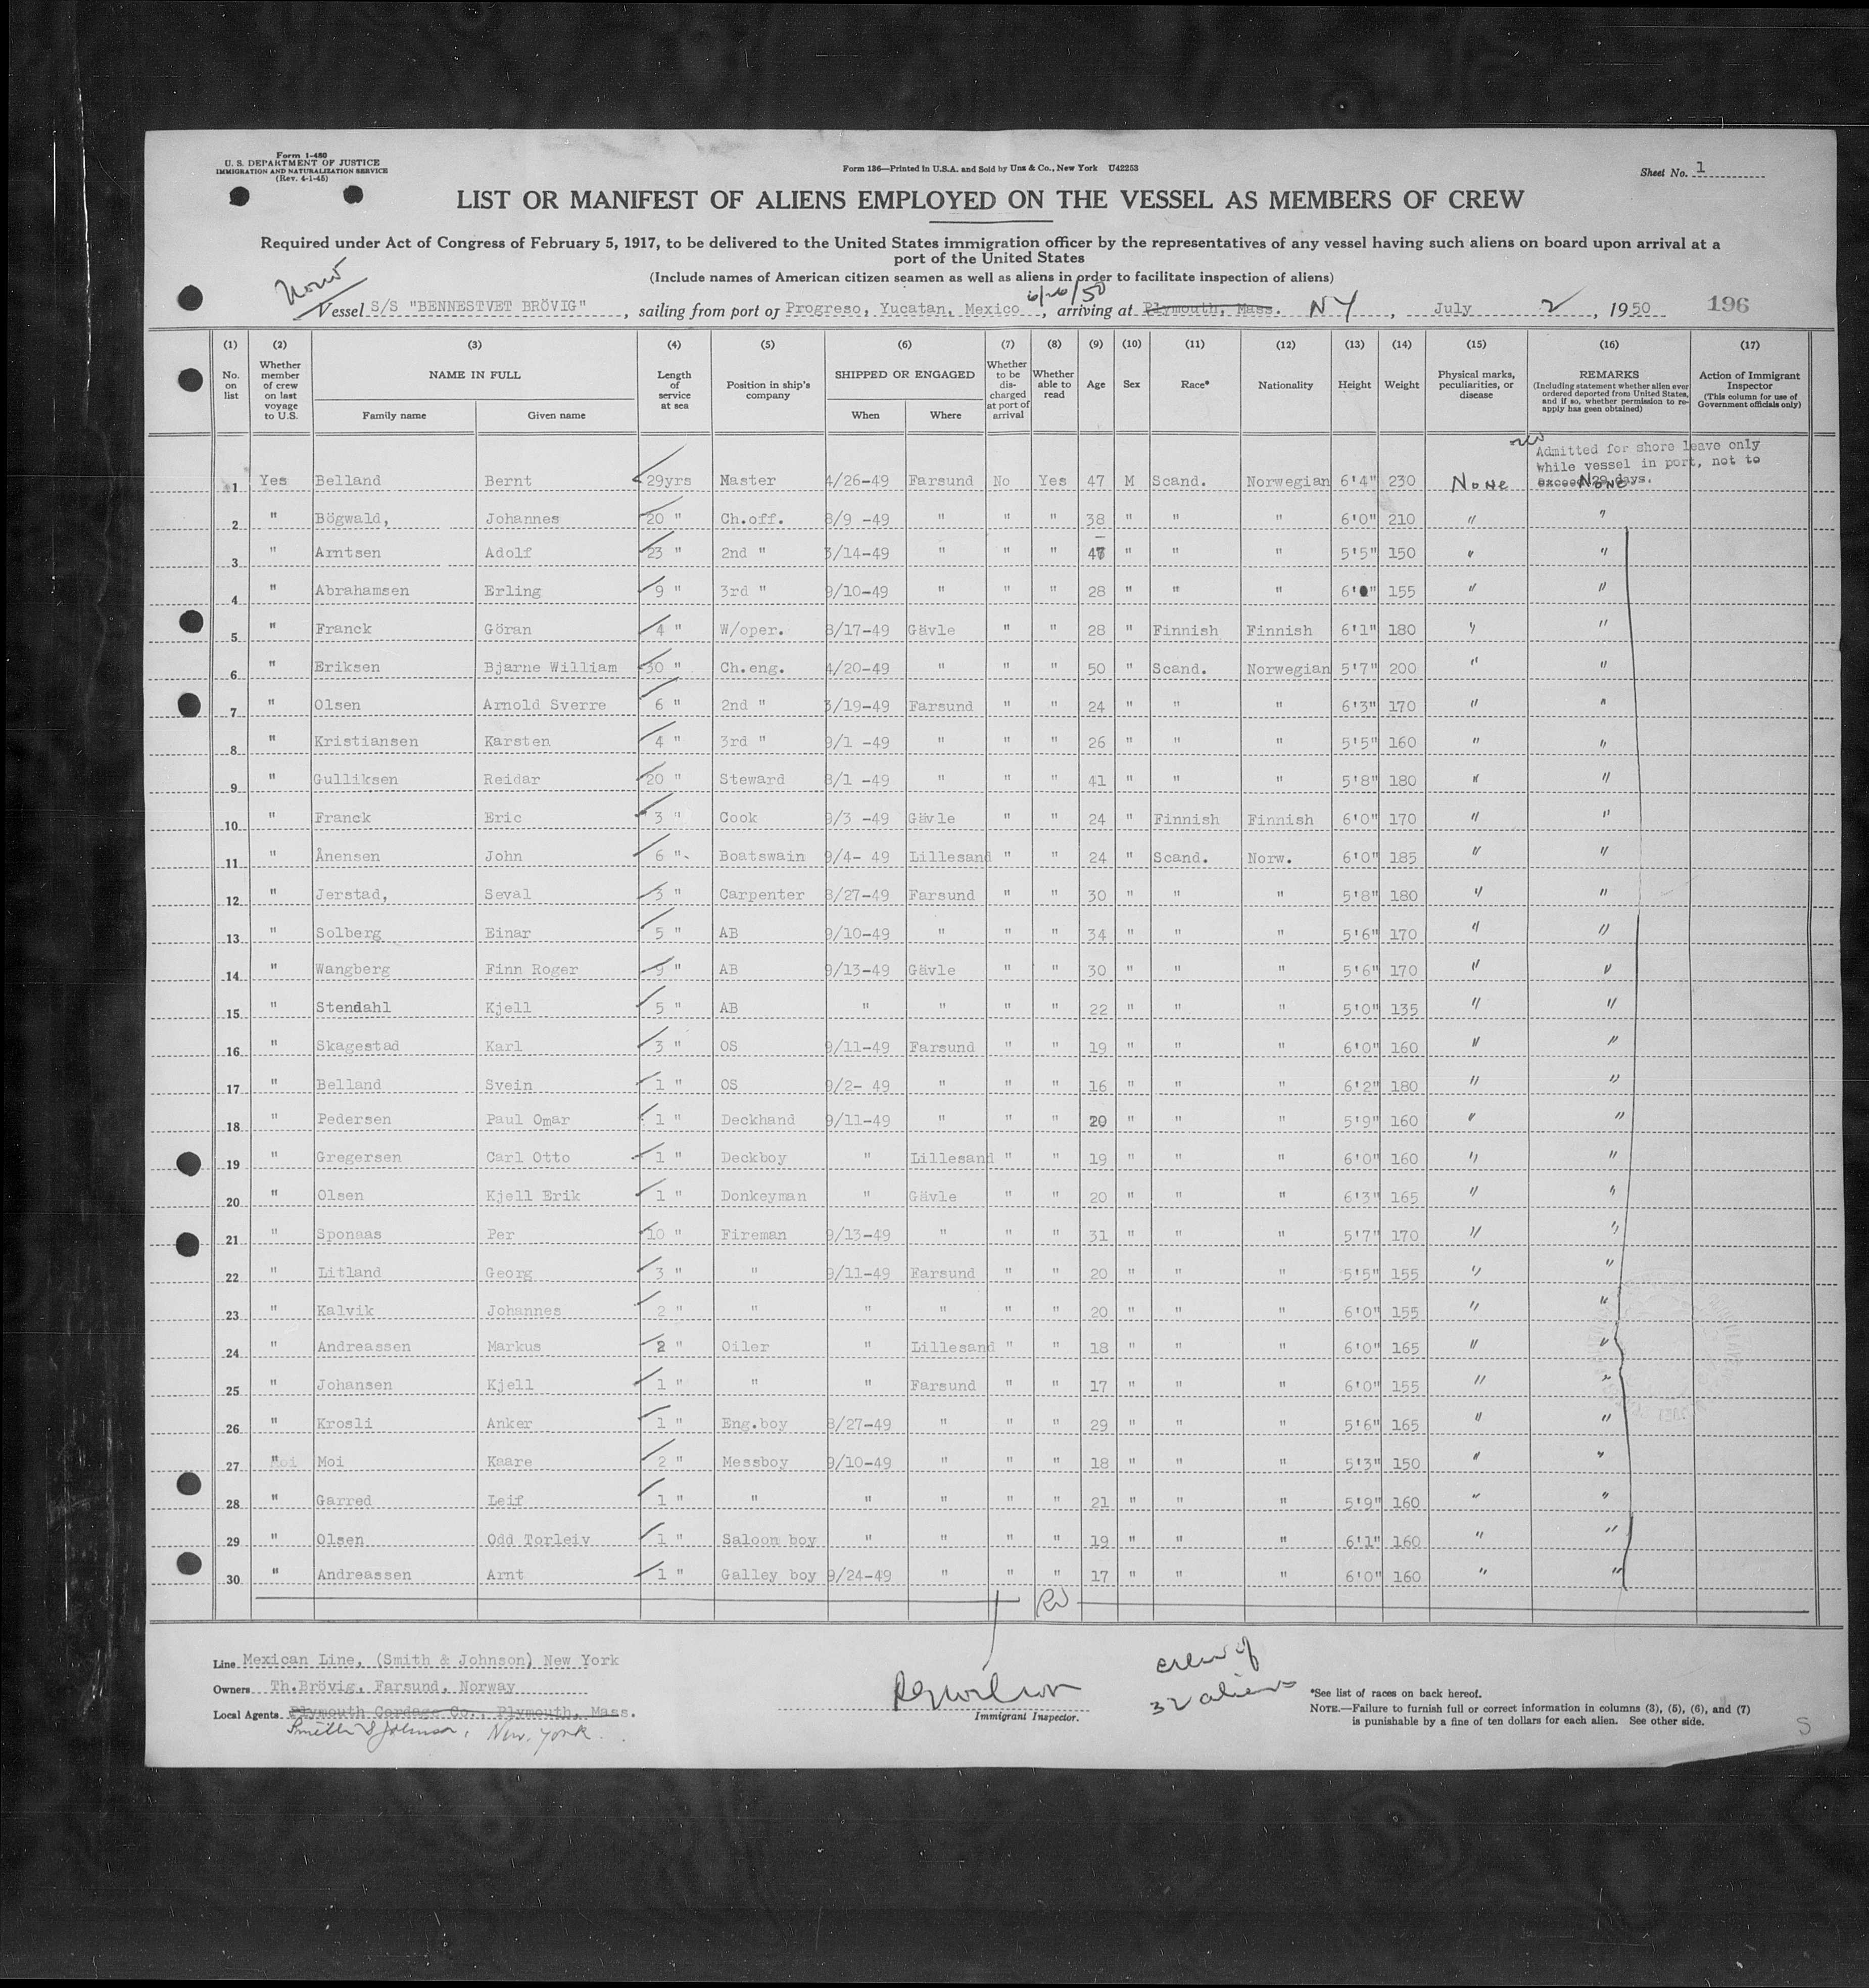 Form I-480
U. S. DEPARTMENT OF JUSTICE
IMMIGRATION AND NATURALIZATION SERVICE
(Rev. 4-1-45)
Form 136—Printed in U.S.A. and Sold by Unz & Co., New York U42253
Sheet No. 1
LIST OR MANIFEST OF ALIENS EMPLOYED ON THE VESSEL AS MEMBERS OF CREW
Required under Act of Congress of February 5, 1917, to be delivered to the United States immigration officer by the representatives of any vessel having such aliens on board upon arrival at a
port of the United States
(Include names of American citizen seamen as well as aliens in order to facilitate inspection of aliens)
Vessel S/S "BENNESTVET BRÖVIG", sailing from port of Progreso, Yucatan, Mexico 6/26/50, arriving at Plymouth, Mass. NY, July 2, 1950 196
(1) (2) (3) (4) (5) (6) (7) (8) (9) (10) (11) (12) (13) (14) (15) (16) (17)
No. on list Whether member of crew on last voyage to U.S. NAME IN FULL Family name Given name Length of service at sea Position in ship's company SHIPPED OR ENGAGED When Where Whether to be discharged at port of arrival Whether able to read Age Sex Race* Nationality Height Weight Physical marks, peculiarities, or disease REMARKS (Including statement whether alien ever ordered deported from United States, and if so, whether permission to re-apply has geen obtained) Action of Immigrant Inspector (This column for use of Government officials only)
Admitted for shore leave only
while vessel in port, not to
exceed 29 days.
1 Yes Belland Bernt 29yrs Master 4/26-49 Farsund No Yes 47 M Scand. Norwegian 6'4" 230 None None
2 " Bögwald, Johannes 20 " Ch.off. 8/9 -49 " " " 38 " " " 6'0" 210 " "
3 " Arntsen Adolf 23 " 2nd " 3/14-49 " " " 47 " " " 5'5" 150 " "
4 " Abrahamsen Erling 9 " 3rd " 9/10-49 " " " 28 " " " 6'0" 155 " "
5 " Franck Göran 4 " W/oper. 8/17-49 Gävle " " 28 " Finnish Finnish 6'1" 180 " "
6 " Eriksen Bjarne William 30 " Ch.eng. 4/20-49 " " " 50 " Scand. Norwegian 5'7" 200 " "
7 " Olsen Arnold Sverre 6 " 2nd " 3/19-49 Farsund " " 24 " " " 6'3" 170 " "
8 " Kristiansen Karsten 4 " 3rd " 9/1 -49 " " " 26 " " " 5'5" 160 " "
9 " Gulliksen Reidar 20 " Steward 8/1 -49 " " " 41 " " " 5'8" 180 " "
10 " Franck Eric 3 " Cook 9/3 -49 Gävle " " 24 " Finnish Finnish 6'0" 170 " "
11 " Ånensen John 6 " Boatswain 9/4- 49 Lillesand " " 24 " Scand. Norw. 6'0" 185 " "
12 " Jerstad, Seval 3 " Carpenter 8/27-49 Farsund " " 30 " " " 5'8" 180 " "
13 " Solberg Einar 5 " AB 9/10-49 " " " 34 " " " 5'6" 170 " "
14 " Wangberg Finn Roger 9 " AB 9/13-49 Gävle " " 30 " " " 5'6" 170 " "
15 " Stendahl Kjell 5 " AB " " " " 22 " " " 5'0" 135 " "
16 " Skagestad Karl 3 " OS 9/11-49 Farsund " " 19 " " " 6'0" 160 " "
17 " Belland Svein 1 " OS 9/2- 49 " " " 16 " " " 6'2" 180 " "
18 " Pedersen Paul Omar 1 " Deckhand 9/11-49 " " " 20 " " " 5'9" 160 " "
19 " Gregersen Carl Otto 1 " Deckboy " Lillesand " " 19 " " " 6'0" 160 " "
20 " Olsen Kjell Erik 1 " Donkeyman " Gävle " " 20 " " " 6'3" 165 " "
21 " Sponaas Per 10 " Fireman 9/13-49 " " " 31 " " " 5'7" 170 " "
22 " Litland Georg 3 " " 9/11-49 Farsund " " 20 " " " 5'5" 155 " "
23 " Kalvik Johannes 2 " " " " " " 20 " " " 6'0" 155 " "
24 " Andreassen Markus 2 " Oiler " Lillesand " " 18 " " " 6'0" 165 " "
25 " Johansen Kjell 1 " " " Farsund " " 17 " " " 6'0" 155 " "
26 " Krosli Anker 1 " Eng.boy 8/27-49 " " " 29 " " " 5'6" 165 " "
27 " Moi Kaare 2 " Messboy 9/10-49 " " " 18 " " " 5'3" 150 " "
28 " Garred Leif 1 " " " " " " 21 " " " 5'9" 160 " "
29 " Olsen Odd Torleiv 1 " Saloon boy " " " " 19 " " " 6'1" 160 " "
30 " Andreassen Arnt 1 " Galley boy 9/24-49 " " " 17 " " " 6'0" 160 " "
Line Mexican Line, (Smith & Johnson) New York
Owners Th.Brövig, Farsund, Norway
Local Agents Plymouth Cordage Co., Plymouth, Mass.
Smith & Johnson, New York.
Immigrant Inspector.
crew of
32 aliens
*See list of races on back hereof.
NOTE.—Failure to furnish full or correct information in columns (3), (5), (6), and (7)
is punishable by a fine of ten dollars for each alien. See other side.
S